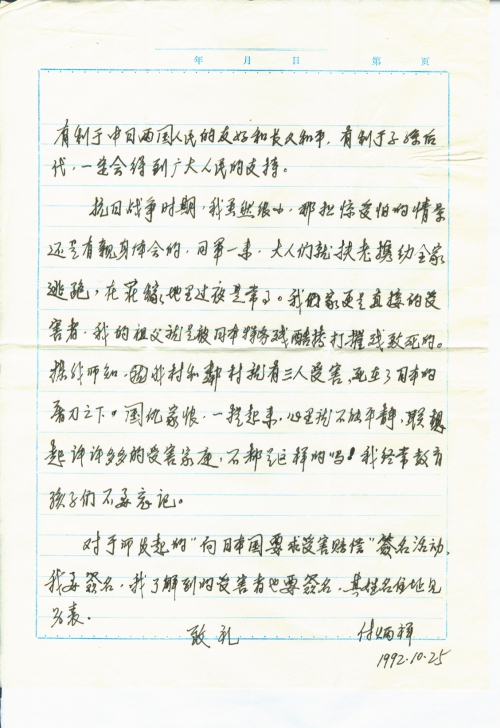 年 月 日 第 页
有利于中日两国人民的友好和长久和平，有利于子孙后
代，一定会得到广大人民的支持。
抗日战争时期，我虽然很小，那担惊受怕的情景
还是有亲身体会的，日军一来，大人们就扶老携幼全家
逃跑，在庄稼地里过夜是常事。我们家更是直接的受
害者，我的祖父就是被日本特务残酷拷打摧残致死的。
据我所知，我村和邻村就有三人受害，死在了日本的
屠刀之下。国仇家恨，一提起来，心里就不能平静，联想
起许许多多的受害家庭，不都是这样的吗！我经常教育
孩子们不要忘记。
对于所发起的“向日本国要求受害赔偿”签名活动，
我要签名，我了解到的受害者也要签名，其姓名住址见
另表。
致礼 付炳祥
1992.10.25